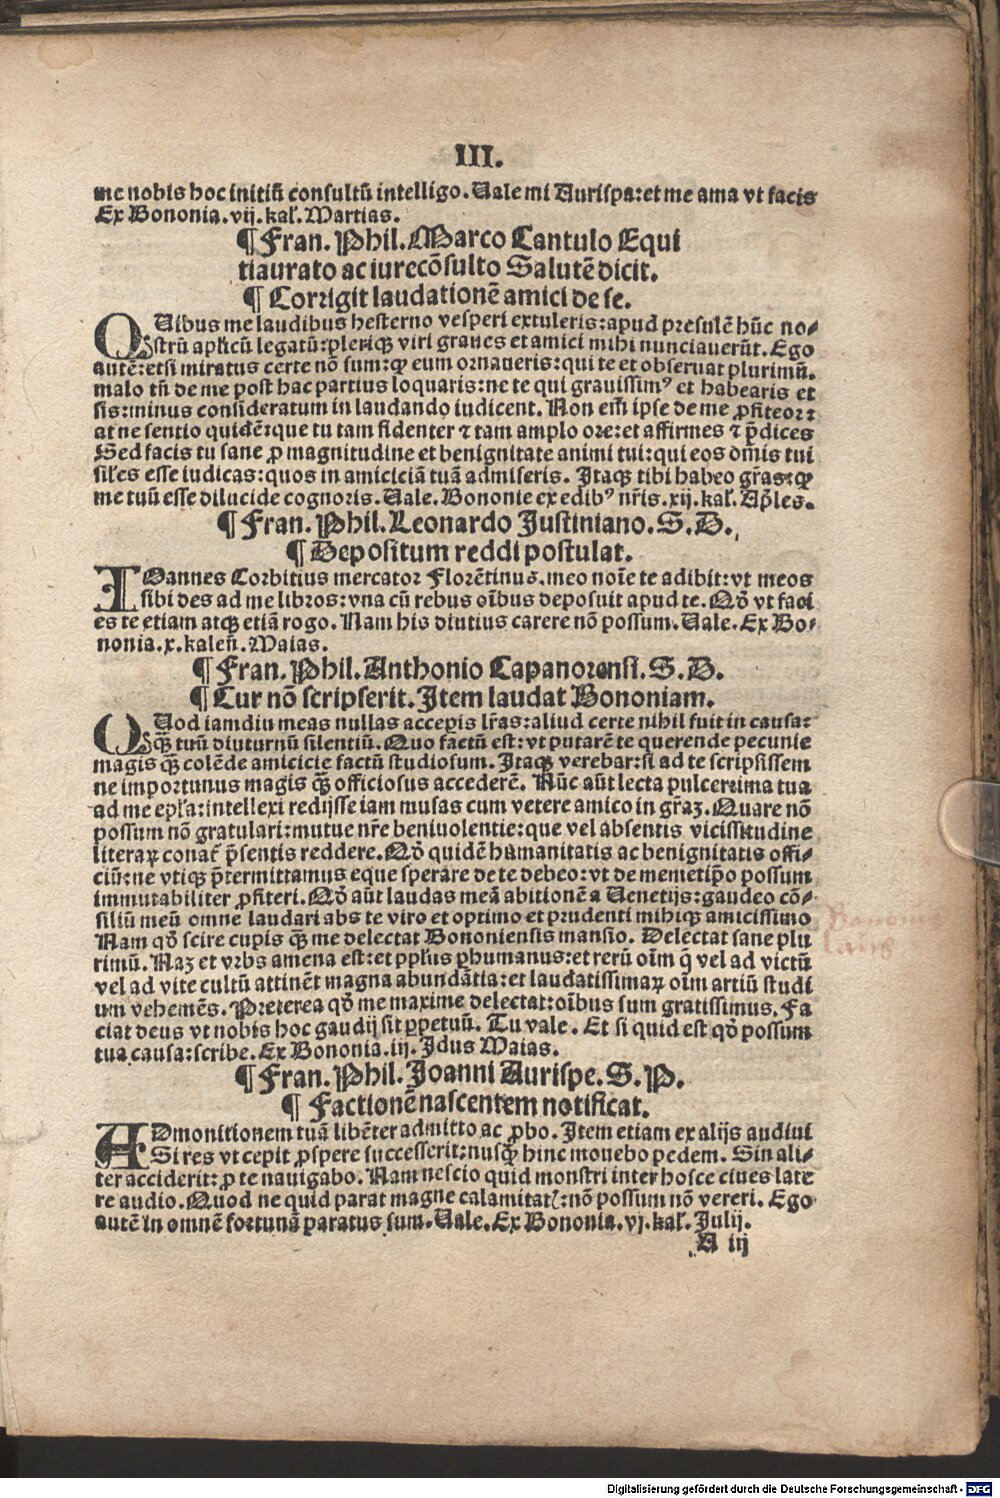 III.
me nobis hoc initiū consultū intelligo. Vale mi Aurispa: et me ama vt facis
Ex Bononia. vij. kaľ. Martias.
¶ Fran. Phil. Marco Cantulo Equi
tiaurato ac iurecōsulto Salutē dicit.
¶ Corrigit laudationē amici de se.
QVibus me laudibus hesterno vesperi extuleris: apud presulē hūc no⸗
strū aplicū legatū: pleriqꝫ viri graues et amici mihi nunciauerūt. Ego
autē: etsi miratus certe nō sum: ꝙ eum ornaueris: qui te et obseruat plurimū.
malo tñ de me post hac partius loquaris: ne te qui grauissimꝰ et habearis et
sis: minus consideratum in laudando iudicent. Non em̄ ipse de me ꝓfiteor:
at ne sentio quidē: que tu tam fidenter ⁊ tam amplo ore: et affirmes ⁊ p̄dices
Sed facis tu sane ꝓ magnitudine et benignitate animi tui: qui eos om̄is tui
siles esse iudicas: quos in amicieiā tuā admiseris. Itaqꝫ tibi habeo gr̄as: ꝙ
me tuū esse dilucide cognoris. Vale. Bononie ex edibꝰ nr̄is. xij. kaľ. Ap̄les.
¶ Fran. Phil. Leonardo Justiniano. S. D.
¶ Depositum reddi postulat.
IOannes Corbitius mercator Florētinus. meo noīe te adibit: vt meos
sibi des ad me libros: vna cū rebus oībus deposuit apud te. Qď vt faci
es te etiam atqꝫ etiā rogo. Nam his diutius carere nō possum. Vale. Ex Bo⸗
nonia. x. kaleñ. Maias.
¶ Fran. Phil. Anthonio Capanorensi. S. D.
¶ Cur nō scripserit. Item laudat Bononiam.
QVod iamdiu meas nullas accepis lr̄as: aliud certe nihil fuit in causa:
qꝫ̄ tuū diuturnū silentiū. Quo factū est: vt putarē te querende pecunie
magis qꝫ̄ colēde amicicie factū studiosum. Itaqꝫ verebar: si ad te scripsissem
ne importunus magis qꝫ̄ officiosus accederē. Nūc aūt lecta pulcerrima tua
ad me epľa: intellexi redijsse iam musas cum vetere amico in gr̄aꝫ. Quare nō
possum nō gratulari: mutue nr̄e beniuolentie: que vel absentis vicissitudine
literaꝝ conať p̄sentis reddere. Qď quidē humanitatis ac benignitatis offi⸗
ciū: ne vtiqꝫ p̄termittamus eque sperare de te debeo: vt de memetip̄o possum
immutabiliter ꝓfiteri. Qď aūt laudas meā abitionē a Venetijs: gaudeo cō⸗
siliū meū omne laudari abs te viro et optimo et prudenti mihiqꝫ amicissimo
Nam qď scire cupis qꝫ̄ me delectat Bononiensis mansio. Delectat sane plu
rimū. Naꝫ et vrbs amena est: et pplus ꝑhumanus: et rerū oīm q̄ vel ad victū
vel ad vite cultū attinēt magna abundātia: et laudatissimaꝝ oīm artiū studi
um vehemēs. Preterea qď me maxime delectat: oībus sum gratissimus. Fa
ciat deus vt nobis hoc gaudij sit ꝑpetuū. Tu vale. Et si quid est qď possum
tua causa: scribe. Ex Bononia. iij. Idus Maias.
¶ Fran. Phil. Joanni Aurispe. S. P.
¶ Factionē nascentem notificat.
ADmonitionem tuā libēter admitto ac ꝓbo. Item etiam ex alijs audiui
Si res vt cepit ꝓspere successerit: nusqꝫ̄ hinc mouebo pedem. Sin ali⸗
ter acciderit: ꝓ te nauigabo. Nam nescio quid monstri inter hosce ciues late
re audio. Quod ne quid parat magne calamitatꝭ: nō possum nō vereri. Ego
autē in omnē fortunā paratus sum. Vale. Ex Bononia. vj. kaľ. Julij.
A iij
Bononie
laus
Digitalisierung gefördert durch die Deutsche Forschungsgemeinschaft - DFG